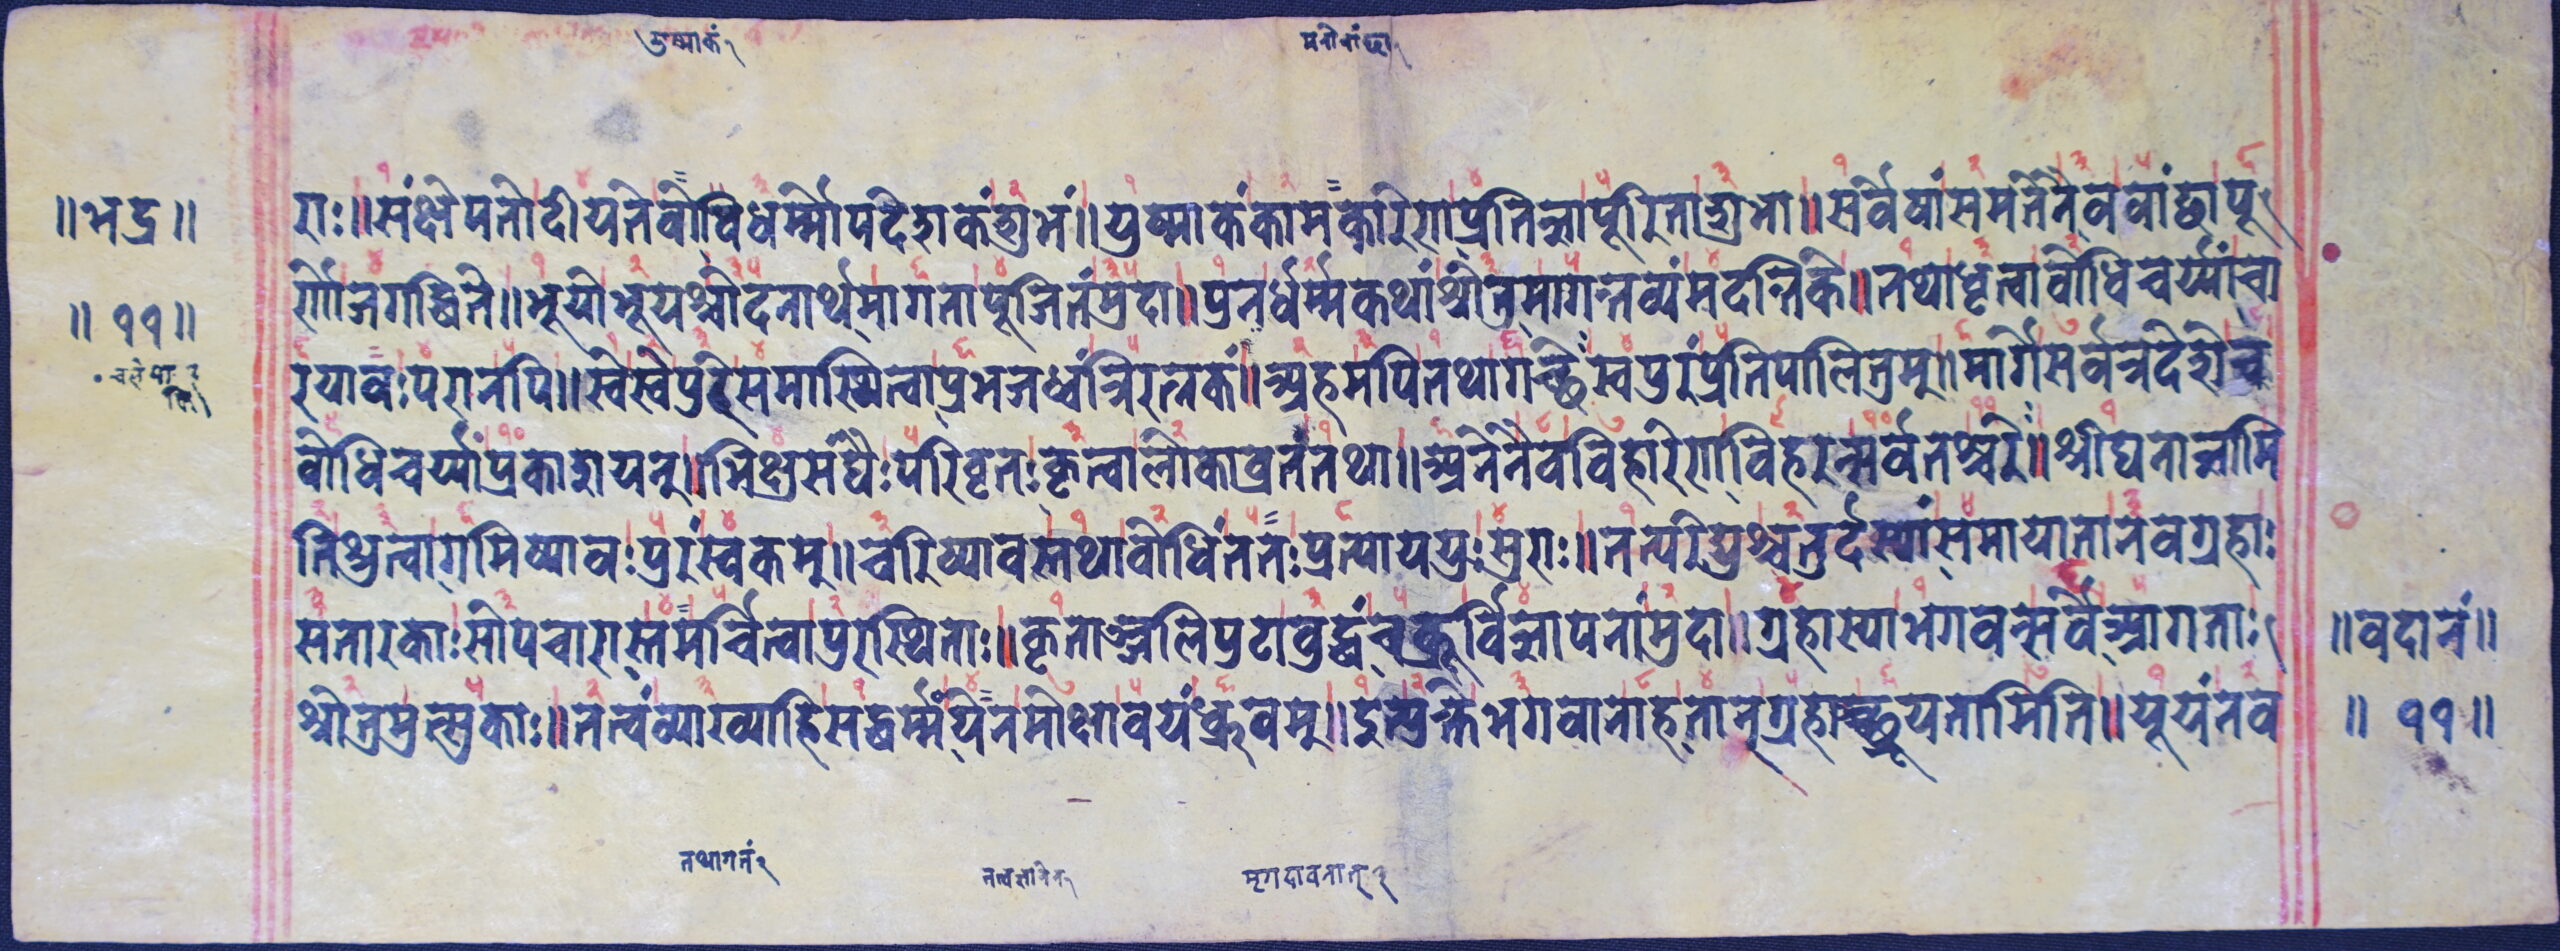 युष्माकं १
मनोवांछा १
॥भद्र॥
राः॥संक्षेपतोदीयतेबोधिधर्म्मोपदेशकंशुभं॥युष्माकंकामकारेणप्रतिज्ञापूरिताशुभा॥सर्वेषांसमतेनैववांछापू
॥११॥
र्णाजगद्धिते॥भूयोभूयश्चोदनार्थमागतापूजितंमुदा॥पुनर्धर्म्मकथांश्रोतुमागन्तव्यंमदन्तिके॥तथाधृत्वाबोधिचर्य्यांचा
रयावः परानपि॥स्वेस्वेपुरेसमास्थित्वाप्रभजध्वंत्रिरत्नकं॥अहमपितथागच्छेस्वपुरंप्रतिपालितुम्॥मार्गेसर्वत्रदेशेच
बोधिचर्य्यांप्रकाशयन्॥भिक्षुसंघैः परिवृतः कृत्वालोकाव्रतंतथा॥अनेनैवविहारेणविहरन्सर्वतश्चरे॥श्रीघनाज्ञामि
तिश्रुत्वागमिष्यावः पुरंस्वकम्॥चरिष्यावस्तथाबोधिंततः प्रत्याययुः सुराः॥तत्परेद्युश्चतुर्दश्यांसमायातानवग्रहाः
सतारकाः सोपचारास्तमर्चित्वापुरस्थिताः॥कृताञ्जलिपुटाबुद्धंचक्रुर्विज्ञापनांमुदा॥ग्रहास्याभगवन्सर्वेआगताः
॥वदानं॥
श्रोतुमुत्सुकाः॥तत्त्वंव्याख्याहिसद्धर्म्मंयेनमोक्षावयंध्रुवम्॥इत्युक्तेभगवानाहतान्ग्रहाञ्छ्रूयतामिति॥यूयंनव
॥११॥
तथागतं २
मृगदावनात् १